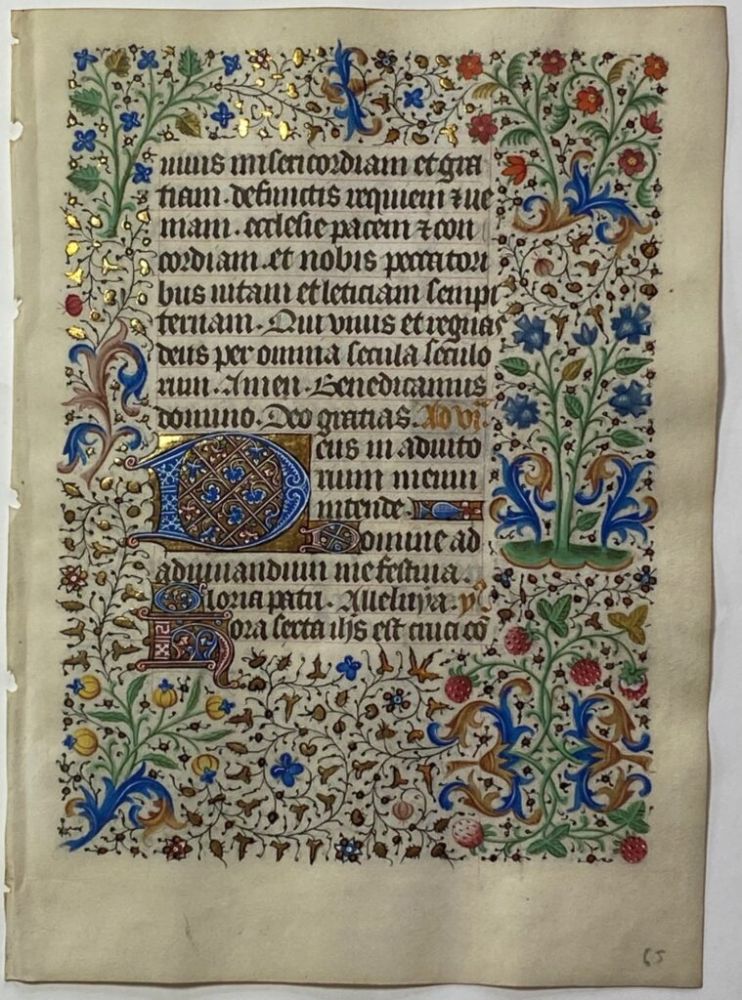 uiuis misericordiam et gra
tiam. defunctis requiem ⁊ ue
niam. ecclesie pacem ⁊ con
cordiam. et nobis peccatori
bus uitam et leticiam sempi
ternam. Qui viuis et regnas
deus per omnia secula seculo
rum. Amen. Benedicamus
domino. Deo gratias. Ad vi.
Deus in adiuto
rium meum
intende.
Domine ad
adiuuandum me festina.
Gloria patri. Alleluya. y͛
Hora sexta ihs est cruci cō
65